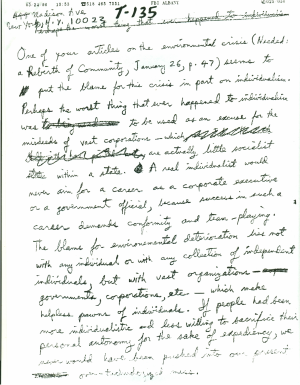 Madison Ave
New York, N.Y. 10023 T-135
FBI ALBANY
Perhaps the worst thing that ever happened to individualism
One of your articles on the environmental crisis (Needed:
a Rebirth of Community, January 26, p. 47) seems to
put the blame for this crisis in part on individualism.
Perhaps the worst thing that ever happened to individualism
was to be used as an excuse for the
misdeeds of vast corporations — which
are actually little socialist
states within a state. A real individualist would
never aim for a career as a corporate executive
or a government official, because success in such a
career demands conformity and team-playing.
The blame for environmental deterioration lies not
with any individual or with any collection of independent
individuals, but with vast organizations —
governments, corporations, etc — which make
helpless pawns of individuals. If people had been
more individualistic and less willing to sacrifice their
personal autonomy for the sake of expediency, we
never would have been pushed into our present
over-technologized mess.